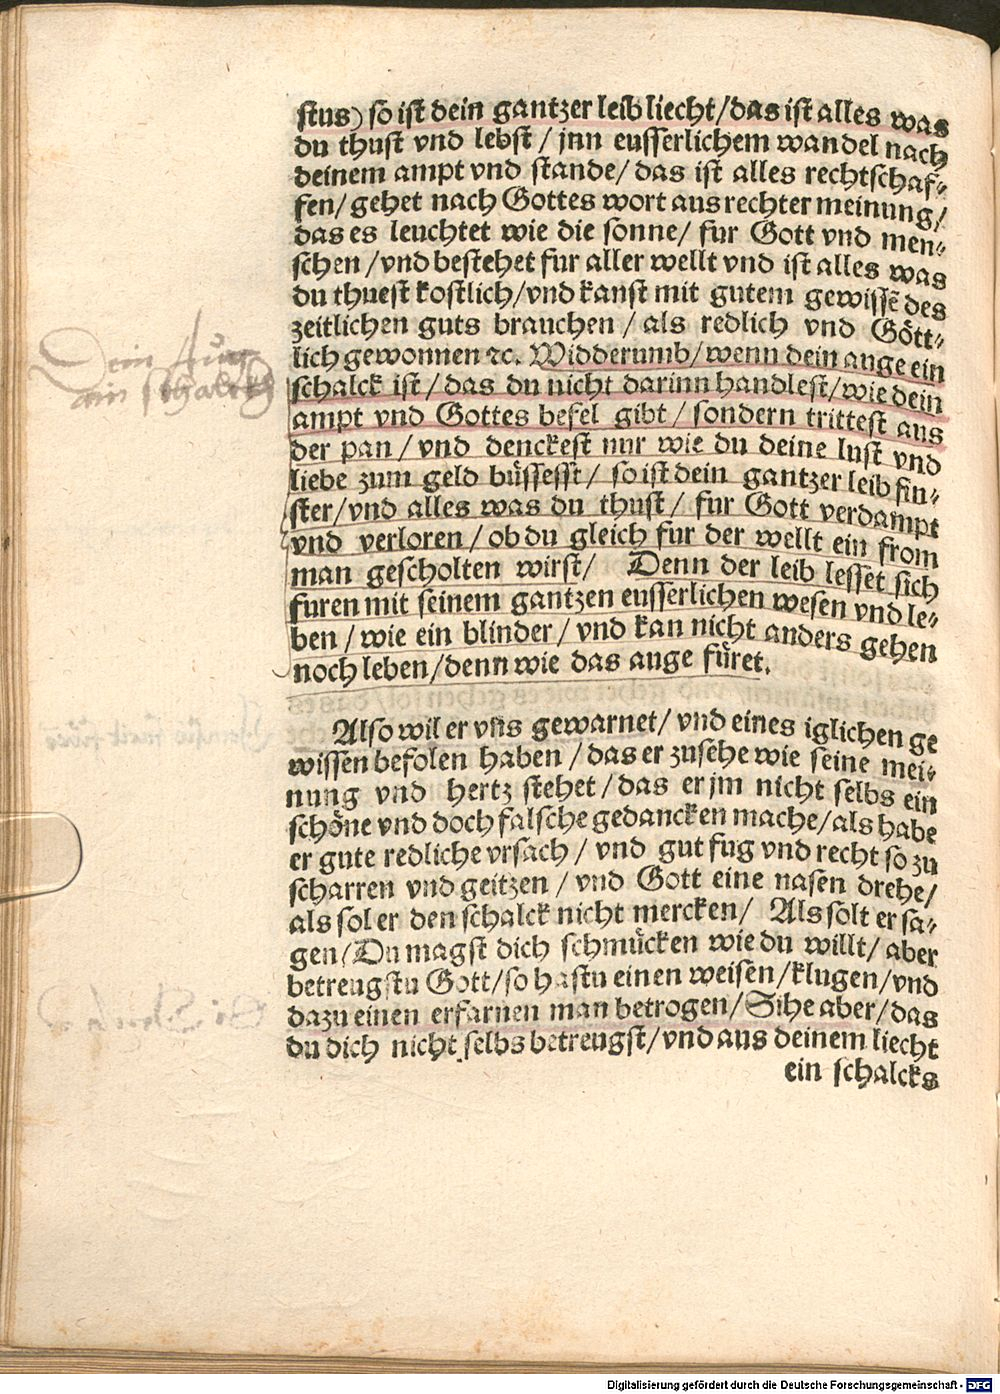 stus) so ist dein gantzer leib liecht/das ist alles was
du thust vnd lebst / jnn eusserlichem wandel nach
deinem ampt vnd stande/ das ist alles rechtschaf⸗
fen/ gehet nach Gottes wort aus rechter meinung/
das es leuchtet wie die sonne/ fur Gott vnd men⸗
schen /vnd bestehet fur aller wellt vnd ist alles was
du thuest kostlich/vnd kanst mit gutem gewissē des
zeitlichen guts brauchen / als redlich vnd Gött⸗
lich gewonnen ꝛc. Widderumb/wenn dein auge ein
schalck ist / das du nicht darinn handlest/wie dein
ampt vnd Gottes befel gibt / sondern trittest aus
der pan / vnd denckest nur wie du deine lust vnd
liebe zum geld büssesst / so ist dein gantzer leib fin⸗
ster/vnd alles was du thust / fur Gott verdampt
vnd verloren / ob du gleich fur der wellt ein from
man gescholten wirst/ Denn der leib lesset sich
furen mit seinem gantzen eusserlichen wesen vnd le⸗
ben / wie ein blinder / vnd kan nicht anders gehen
noch leben/denn wie das auge füret.
Also wil er vns gewarnet/ vnd eines iglichen ge
wissen befolen haben / das er zusehe wie seine mei⸗
nung vnd hertz stehet / das er jm nicht selbs ein
schöne vnd doch falsche gedancken mache/als habe
er gute redliche vrsach / vnd gut fug vnd recht so zu
scharren vnd geitzen / vnd Gott eine nasen drehe/
als sol er den schalck nicht mercken/ Als solt er sa⸗
gen/Du magst dich schmücken wie du willt/ aber
betreugstu Gott/so hastu einen weisen/klugen/vnd
dazu einen erfarnen man betrogen/Sihe aber/das
du dich nicht selbs betreugst/vnd aus deinem liecht
ein schalcks
Dein Aug
ain schalckh
Digitalisierung gefördert durch die Deutsche Forschungsgemeinschaft - DFG